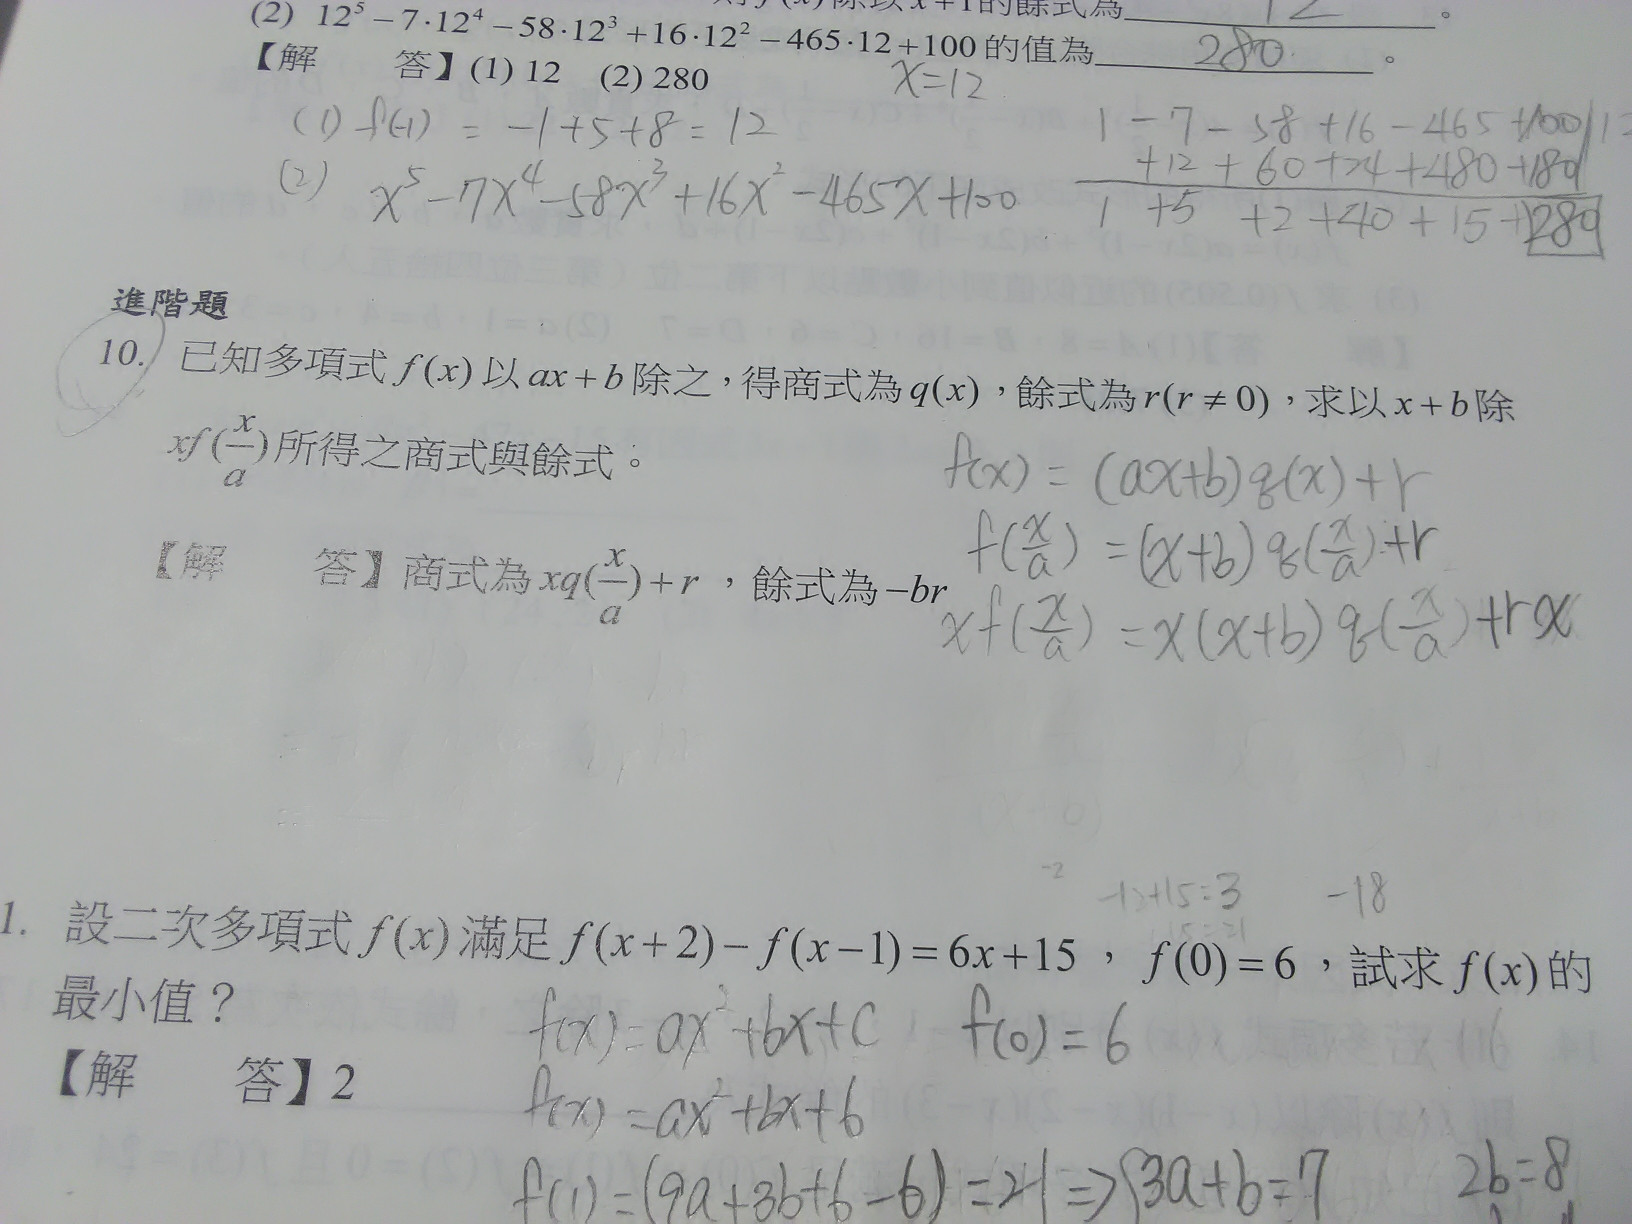 除以x+1的餘式為 12 。
(2) 12⁵−7·12⁴−58·12³+16·12²−465·12+100的值為 280 。
【解 答】(1) 12 (2) 280
x=12
(1) f(-1) = -1+5+8 = 12
(2) x⁵-7x⁴-58x³+16x²-465x+100
1 -7 -58 +16 -465 +100 | 12
+12 +60 +24 +480 +180
1 +5 +2 +40 +15 + 280
進階題
10. 已知多項式 f(x) 以 ax+b 除之，得商式為 q(x)，餘式為 r(r≠0)，求以 x+b 除
xf(x/a) 所得之商式與餘式。
f(x) = (ax+b)q(x)+r
f(x/a) = (x+b)q(x/a)+r
【解 答】商式為 xq(x/a)+r ，餘式為 −br
xf(x/a) = x(x+b)q(x/a)+rx
-2
-12+15=3 -18
1. 設二次多項式 f(x) 滿足 f(x+2)−f(x−1)=6x+15， f(0)=6，試求 f(x) 的
最小值？
f(x)=ax²+bx+c f(0)=6
【解 答】2
f(x)=ax²+bx+6
f(1)=(9a+3b+6-6)=21⇒{3a+b=7 2b=8